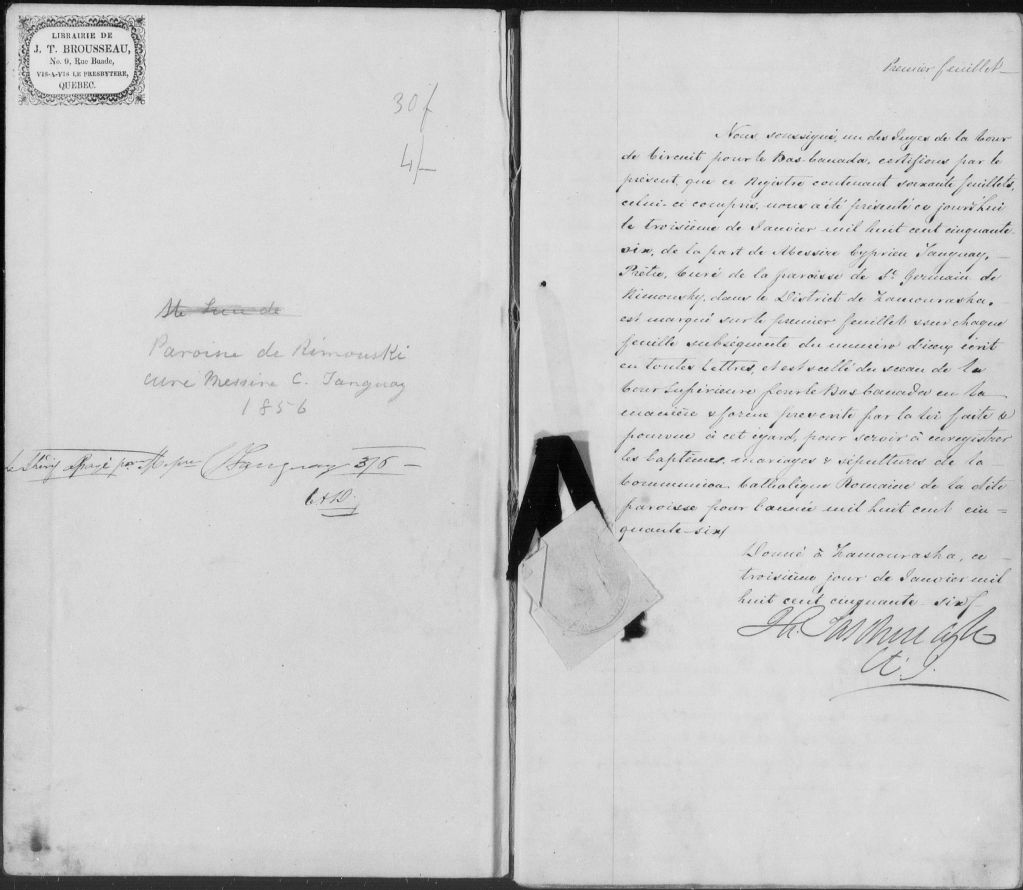 LIBRAIRIE DE
J. T. BROUSSEAU,
No. 9, Rue Buade,
VIS-A-VIS LE PRESBYTERE,
QUEBEC.
30f
4/-
Ste Luce de
Paroisse de Rimouski
curé Messire C. Tanguay
1856
Payé par Tanguay 3/6
Premier feuillet
Nous soussigné, un des Juges de la Cour
de Circuit pour le Bas-Canada, certifions par le
présent, que ce Registre contenant soixante feuillets,
celui-ci compris, nous a été présenté ce jourd'hui
le troisième de Janvier mil huit cent cinquante-
six, de la part de Messire Cyprien Tanguay,
Prêtre, Curé de la paroisse de St. Germain de
Rimousky, dans le District de Kamouraska,
est marqué sur le premier feuillet & sur chaque
feuille subséquente du numéro d'iceux écrit
en toutes lettres, et est scellé du sceau de la
Cour Supérieure pour le Bas Canada en la
manière & forme prescrite par la loi faite &
pourvue à cet égard, pour servir à enregistrer
les baptêmes, mariages & sépultures de la
Communion Catholique Romaine de la dite
paroisse pour l'année mil huit cent cin=
quante-six
Donné à Kamouraska, ce
troisième jour de Janvier mil
huit cent cinquante-six